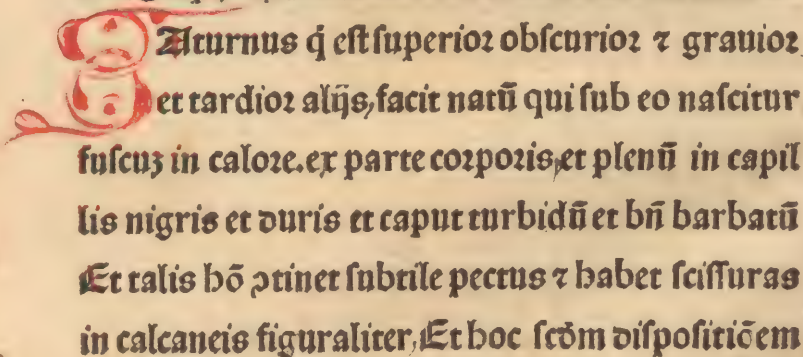 SAturnus q̇ eſt ſuperioꝛ obſcurioꝛ ⁊ grauioꝛ
et tardioꝛ alijs, facit natū qui ſub eo naſcitur
fuſcuꝫ in caloꝛe. ex parte coꝛpoꝛis, et plenū in capil
lis nigris et duris et caput turbidū et bn̄ barbatū
Et talis hō ꝯtinet ſubtile pectus ⁊ habet ſciſſuras
in calcaneis figuraliter, Et hoc ſcd̄m diſpoſitiōem